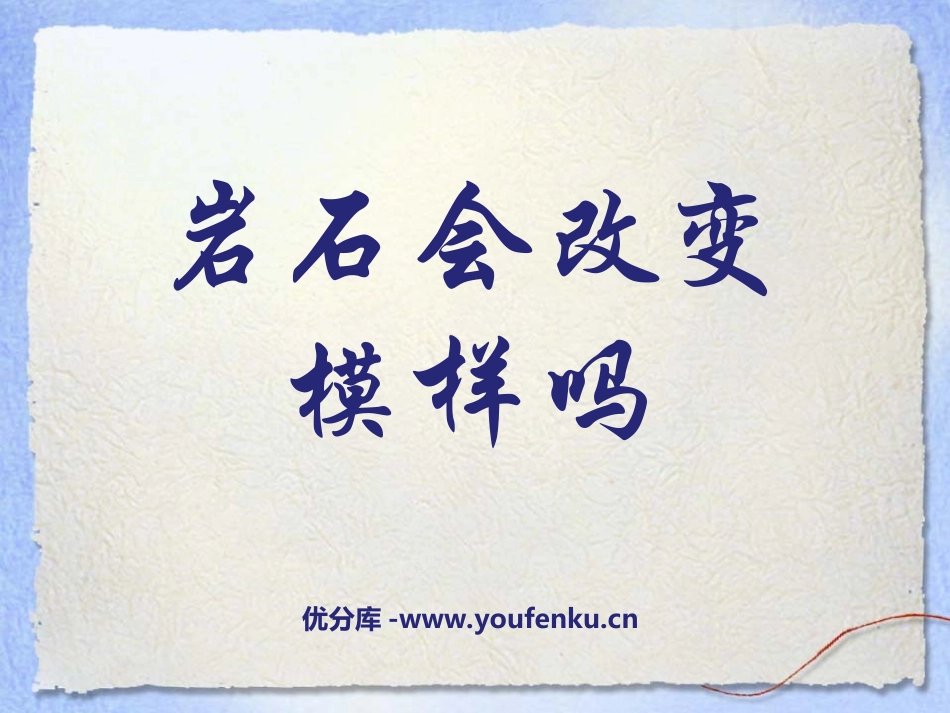 岩石会改变
模样吗
优分库 -www.youfenku.cn